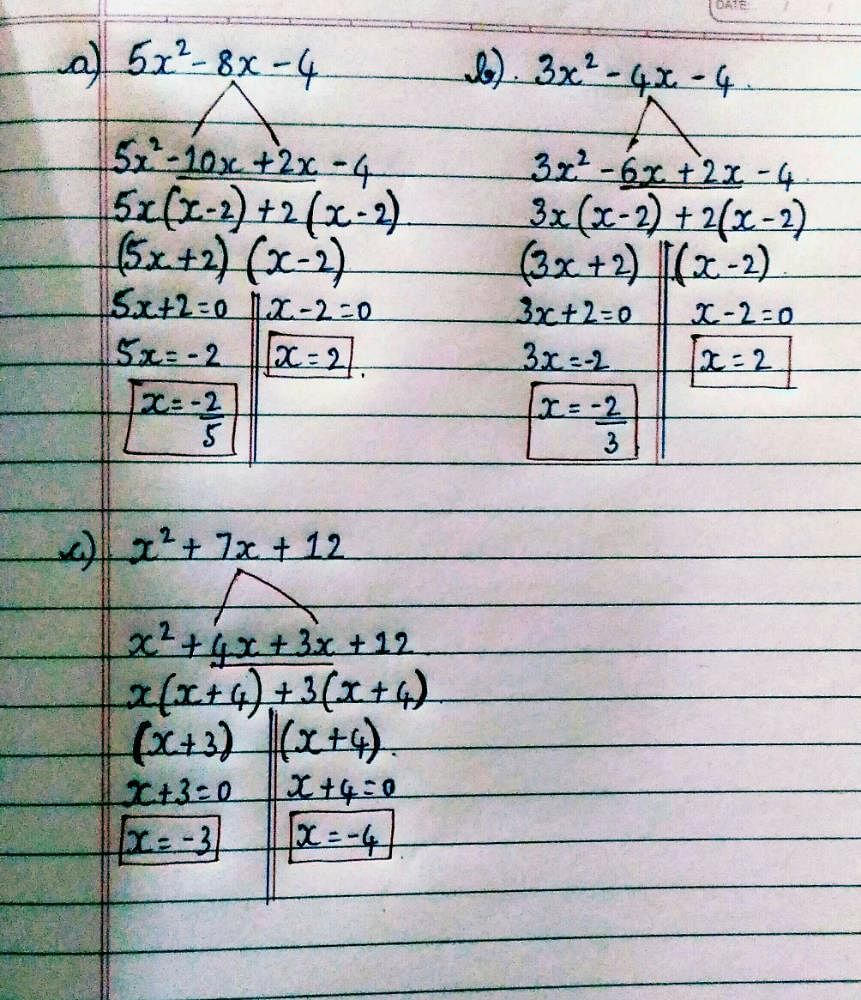 DATE: / /
a) 5x² - 8x - 4
5x² - 10x + 2x - 4
5x(x-2) + 2(x-2)
(5x+2) (x-2)
5x+2=0 x-2=0
5x = -2 x=2
x = -2/5
b). 3x² - 4x - 4.
3x² - 6x + 2x - 4
3x(x-2) + 2(x-2)
(3x+2) (x-2)
3x+2=0 x-2=0
3x=-2 x=2
x = -2/3
c) x² + 7x + 12
x² + 4x + 3x + 12
x(x+4) + 3(x+4)
(x+3) (x+4).
x+3=0 x+4=0
x = -3 x = -4